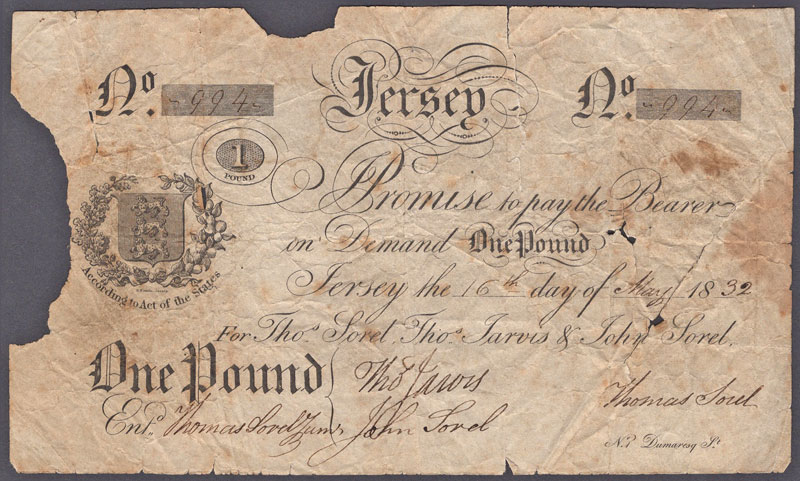 No. 994 Jersey No. 994
1
POUND
I Promise to pay the Bearer
on Demand One Pound
Jersey the 16th day of May 1832
According to Act of the States
For Thos. Sorel, Thos. Jarvis & John Sorel.
One Pound Thos Jarvis Thomas Sorel
Entd. Thomas Sorel Junr John Sorel
No. 7 Dumaresq St.